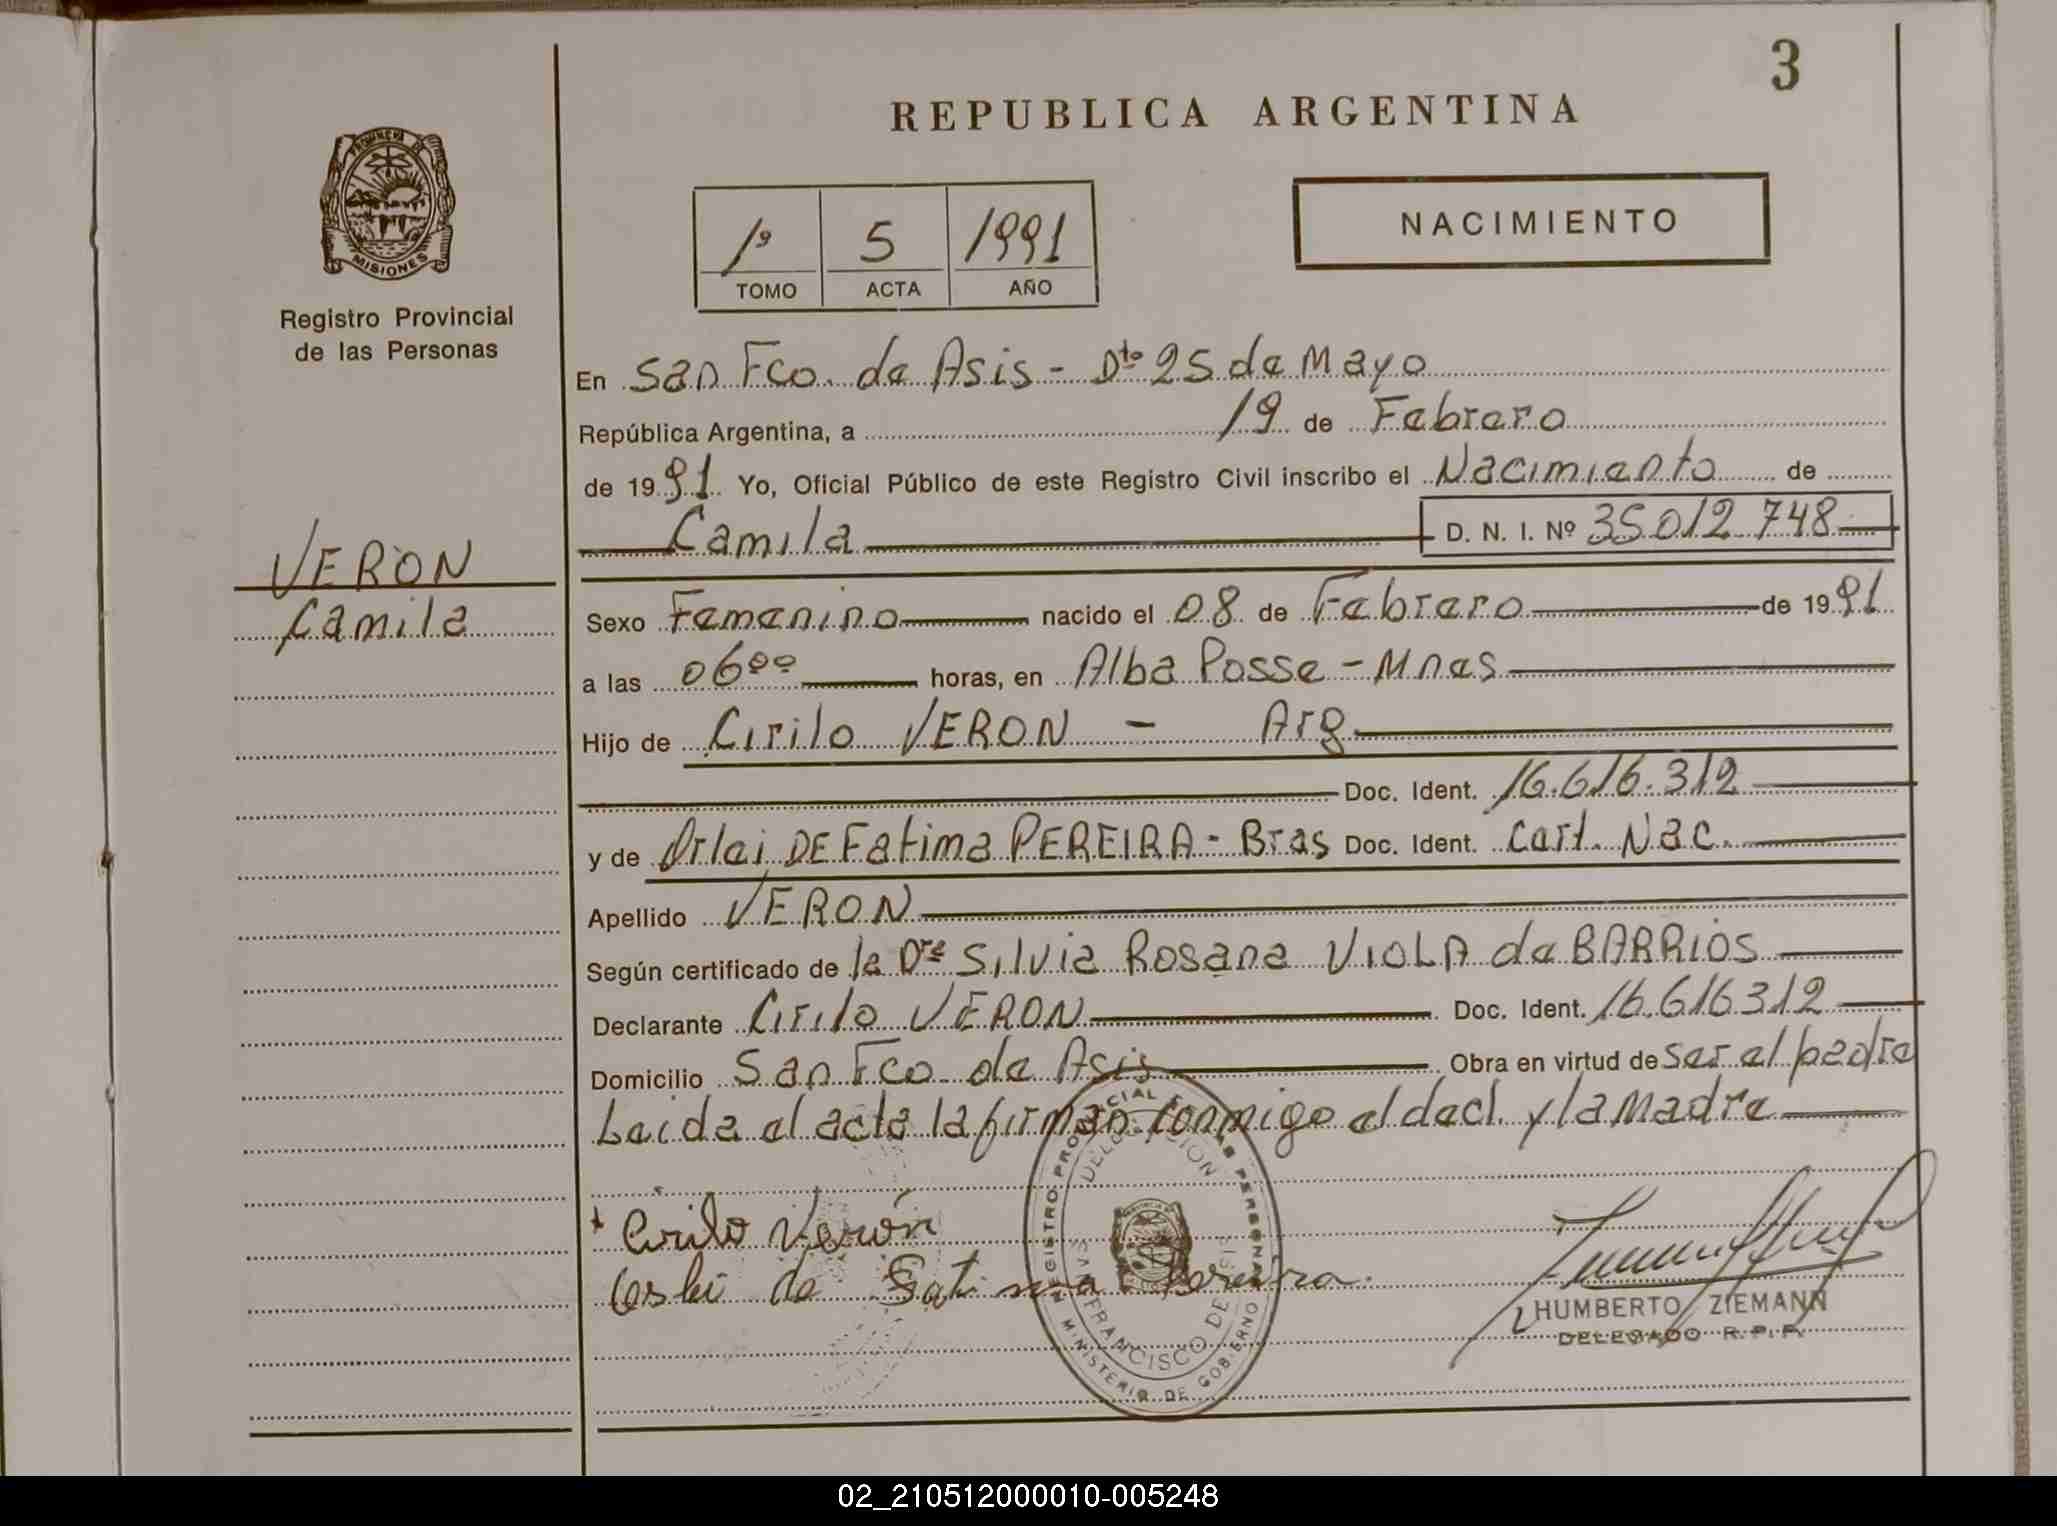 3
REPUBLICA ARGENTINA
PROVINCIA DE
MISIONES
Registro Provincial
de las Personas
1º 5 1991
TOMO ACTA AÑO
NACIMIENTO
En San Fco. de Asis - Dto 25 de Mayo
República Argentina, a 19 de Febrero
de 1991 Yo, Oficial Público de este Registro Civil inscribo el Nacimiento de
Camila D. N. I. Nº 35.012.748
VERON
Camila
Sexo Femenino nacido el 08 de Febrero de 1991
a las 06ºº horas, en Alba Posse - Mnes
Hijo de Cirilo VERON - Arg
Doc. Ident. 16.616.312
y de Orlei DE Fatima PEREIRA - Bras Doc. Ident. Cart. Nac.
Apellido VERON
Según certificado de la Dra Silvia Rosana VIOLA de BARRIOS
Declarante Cirilo VERON Doc. Ident. 16.616.312
Domicilio San Fco. de Asis Obra en virtud de ser el padre
Leida el acta la firman conmigo el decl. y la Madre
Cirilo Verón
de Fatima Pereira
REGISTRO PROVINCIAL DE LAS PERSONAS
DELEGACION
SAN FRANCISCO DE ASIS
MINISTERIO DE GOBIERNO
HUMBERTO ZIEMANN
DELEGADO R. P. P.
02_210512000010-005248